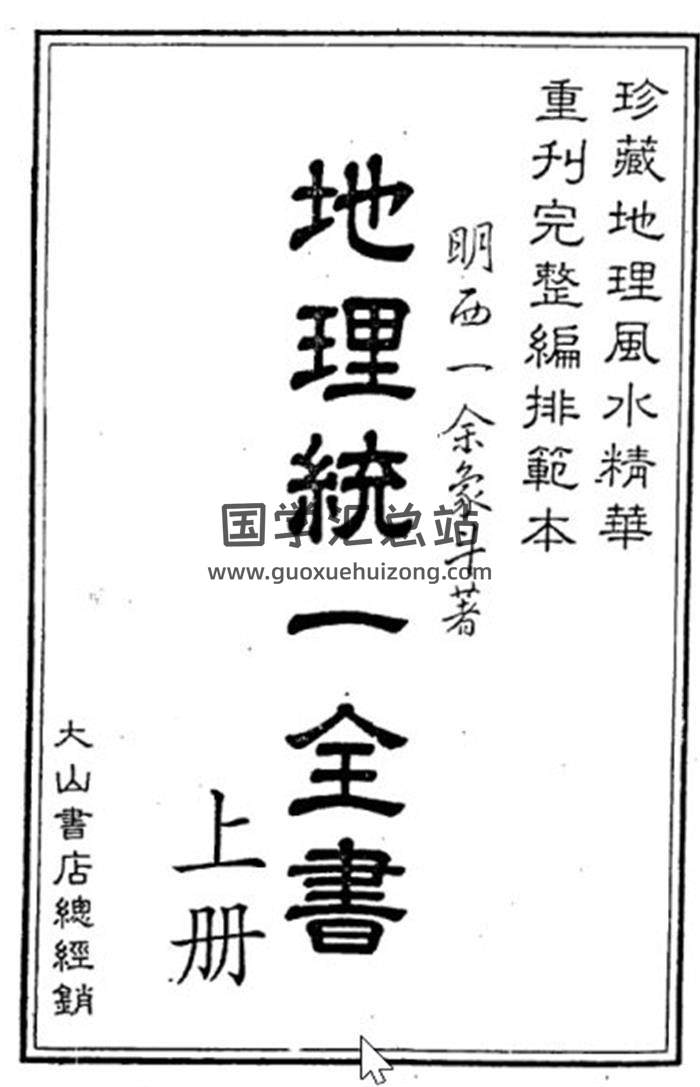 珍藏地理風水精華
重刊完整編排範本
明西一余象斗著
地理統一全書
上册
大山書店總經銷
国学汇总站
www.guoxuehuizong.com